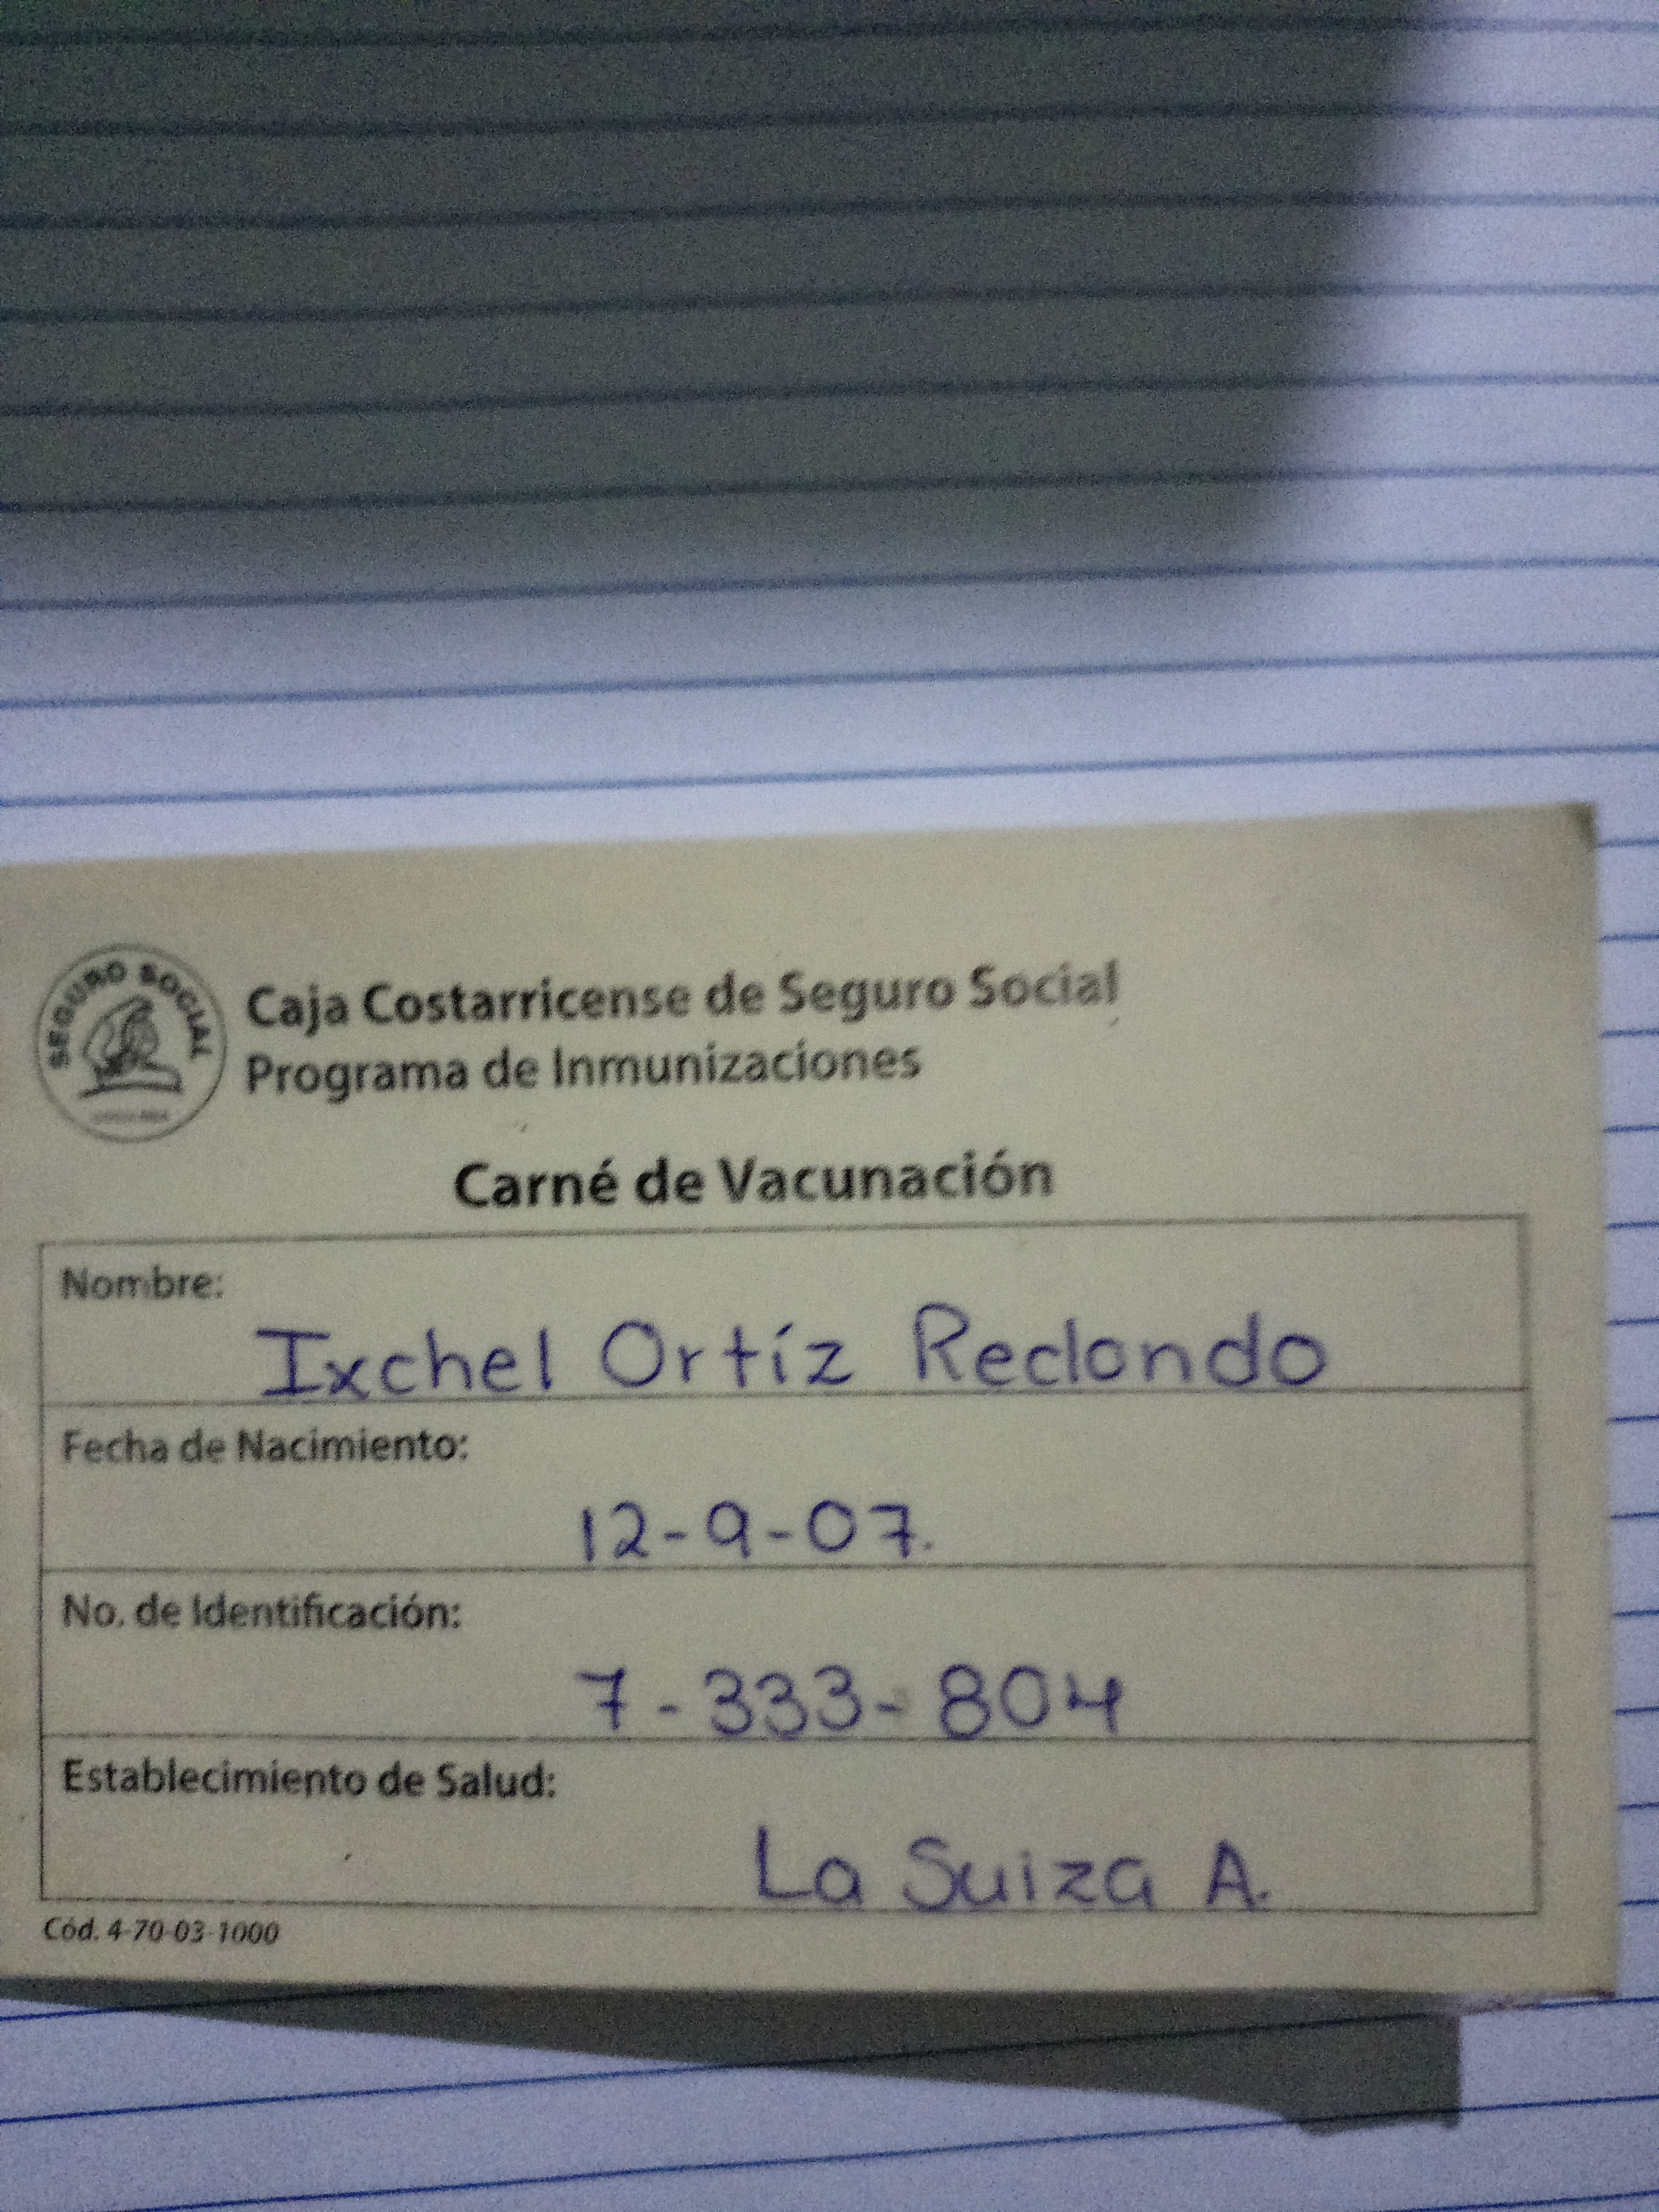 SEGURO SOCIAL
Caja Costarricense de Seguro Social
Programa de Inmunizaciones
Carné de Vacunación
Nombre:
Ixchel Ortíz Redondo
Fecha de Nacimiento:
12-9-07.
No. de Identificación:
7-333-804
Establecimiento de Salud:
La Suiza A.
Cód. 4-70-03-1000